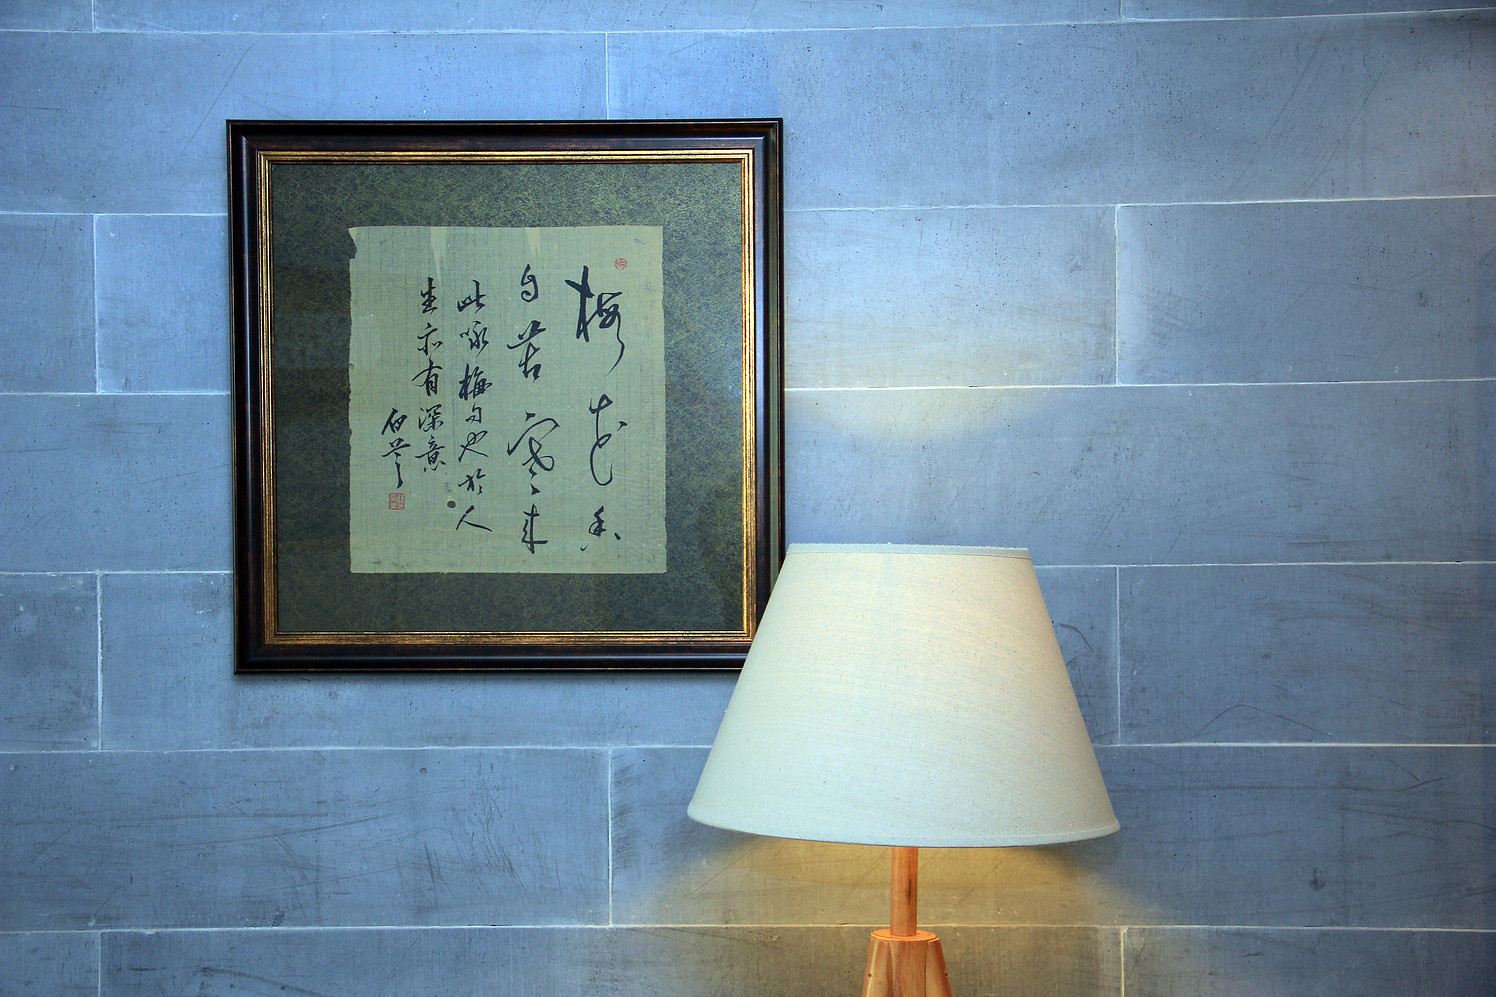 梅花香
自苦寒来
此咏梅句也於人
生亦有深意